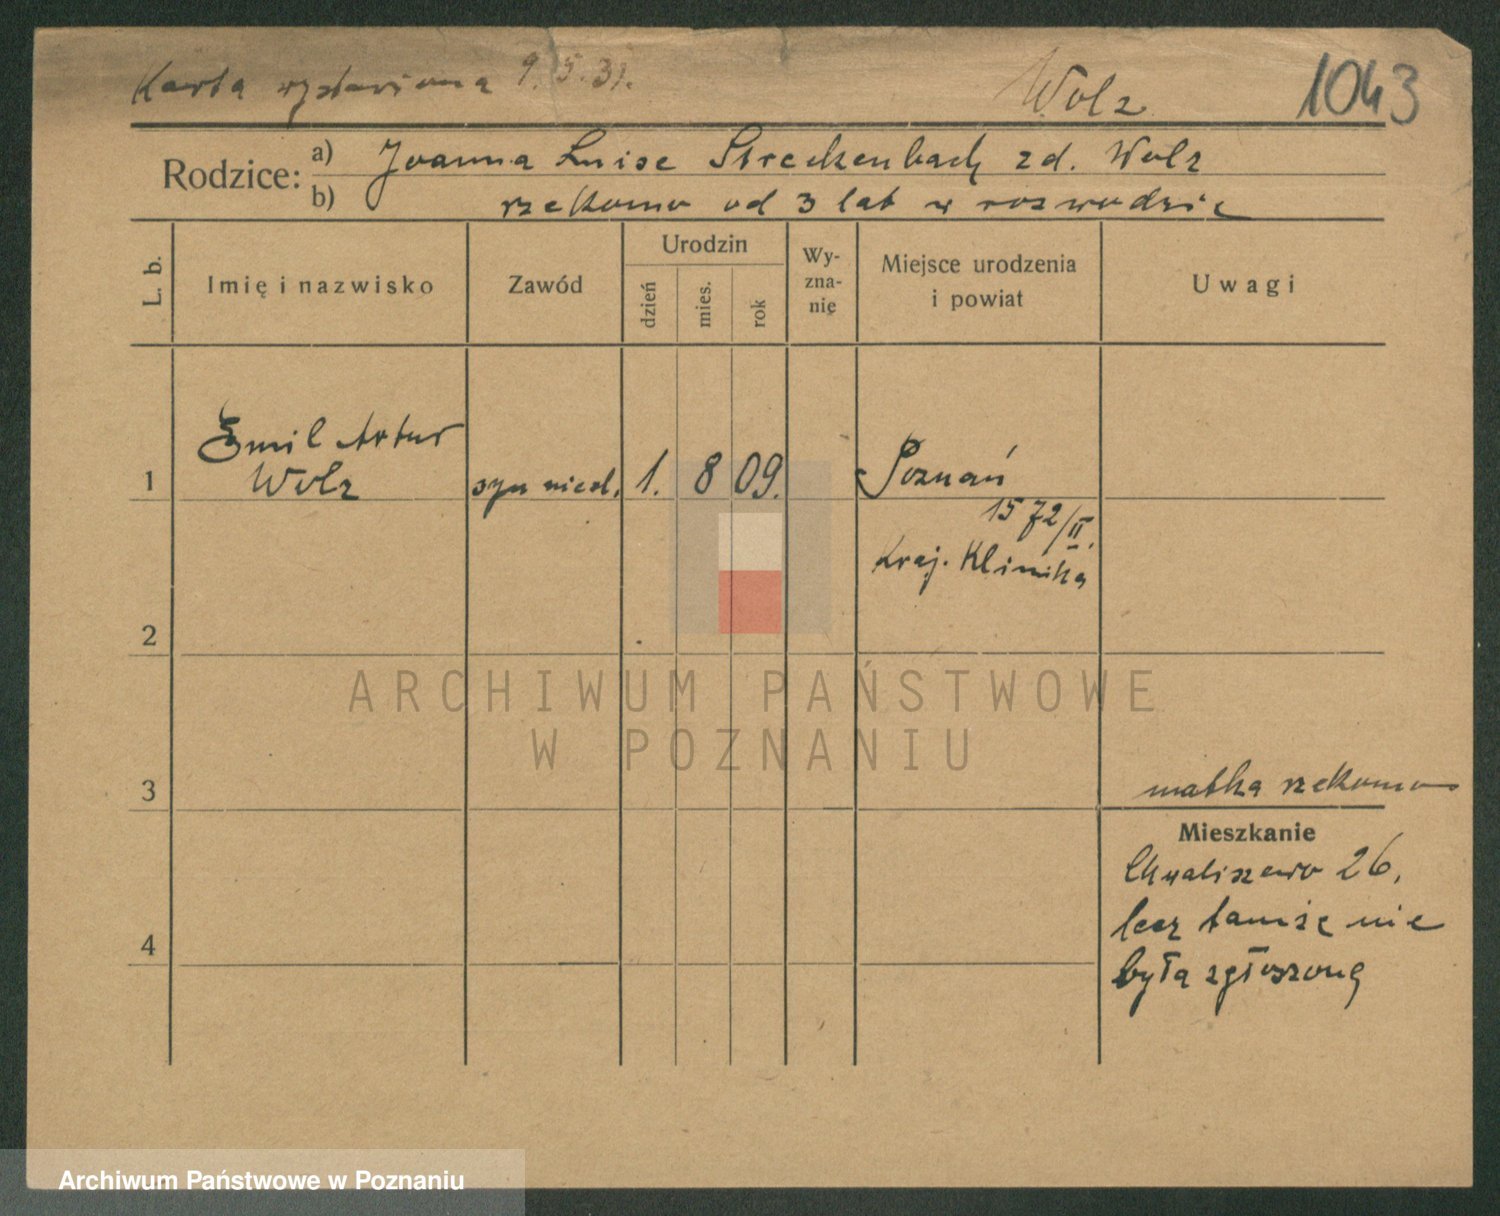 Karta wystawiona 9.5.31.
Wolz
1043
Rodzice:
a) Joanna Luise Streckenbach zd. Wolz
b) rzekomo od 3 lat w rozwodzie
L. b.
Imię i nazwisko
Zawód
Urodzin
dzień
mies.
rok
Wy-
zna-
nię
Miejsce urodzenia
i powiat
Uwagi
Emil Artur
1 Wolz syn nieśl. 1. 8 09. Poznań
1572/II.
Kraj. Klinika
2
ARCHIWUM PAŃSTWOWE
W POZNANIU
3
matka rzekomo
Mieszkanie
Chwaliszewo 26,
lecz tamże nie
4
była zgłoszoną
Archiwum Państwowe w Poznaniu